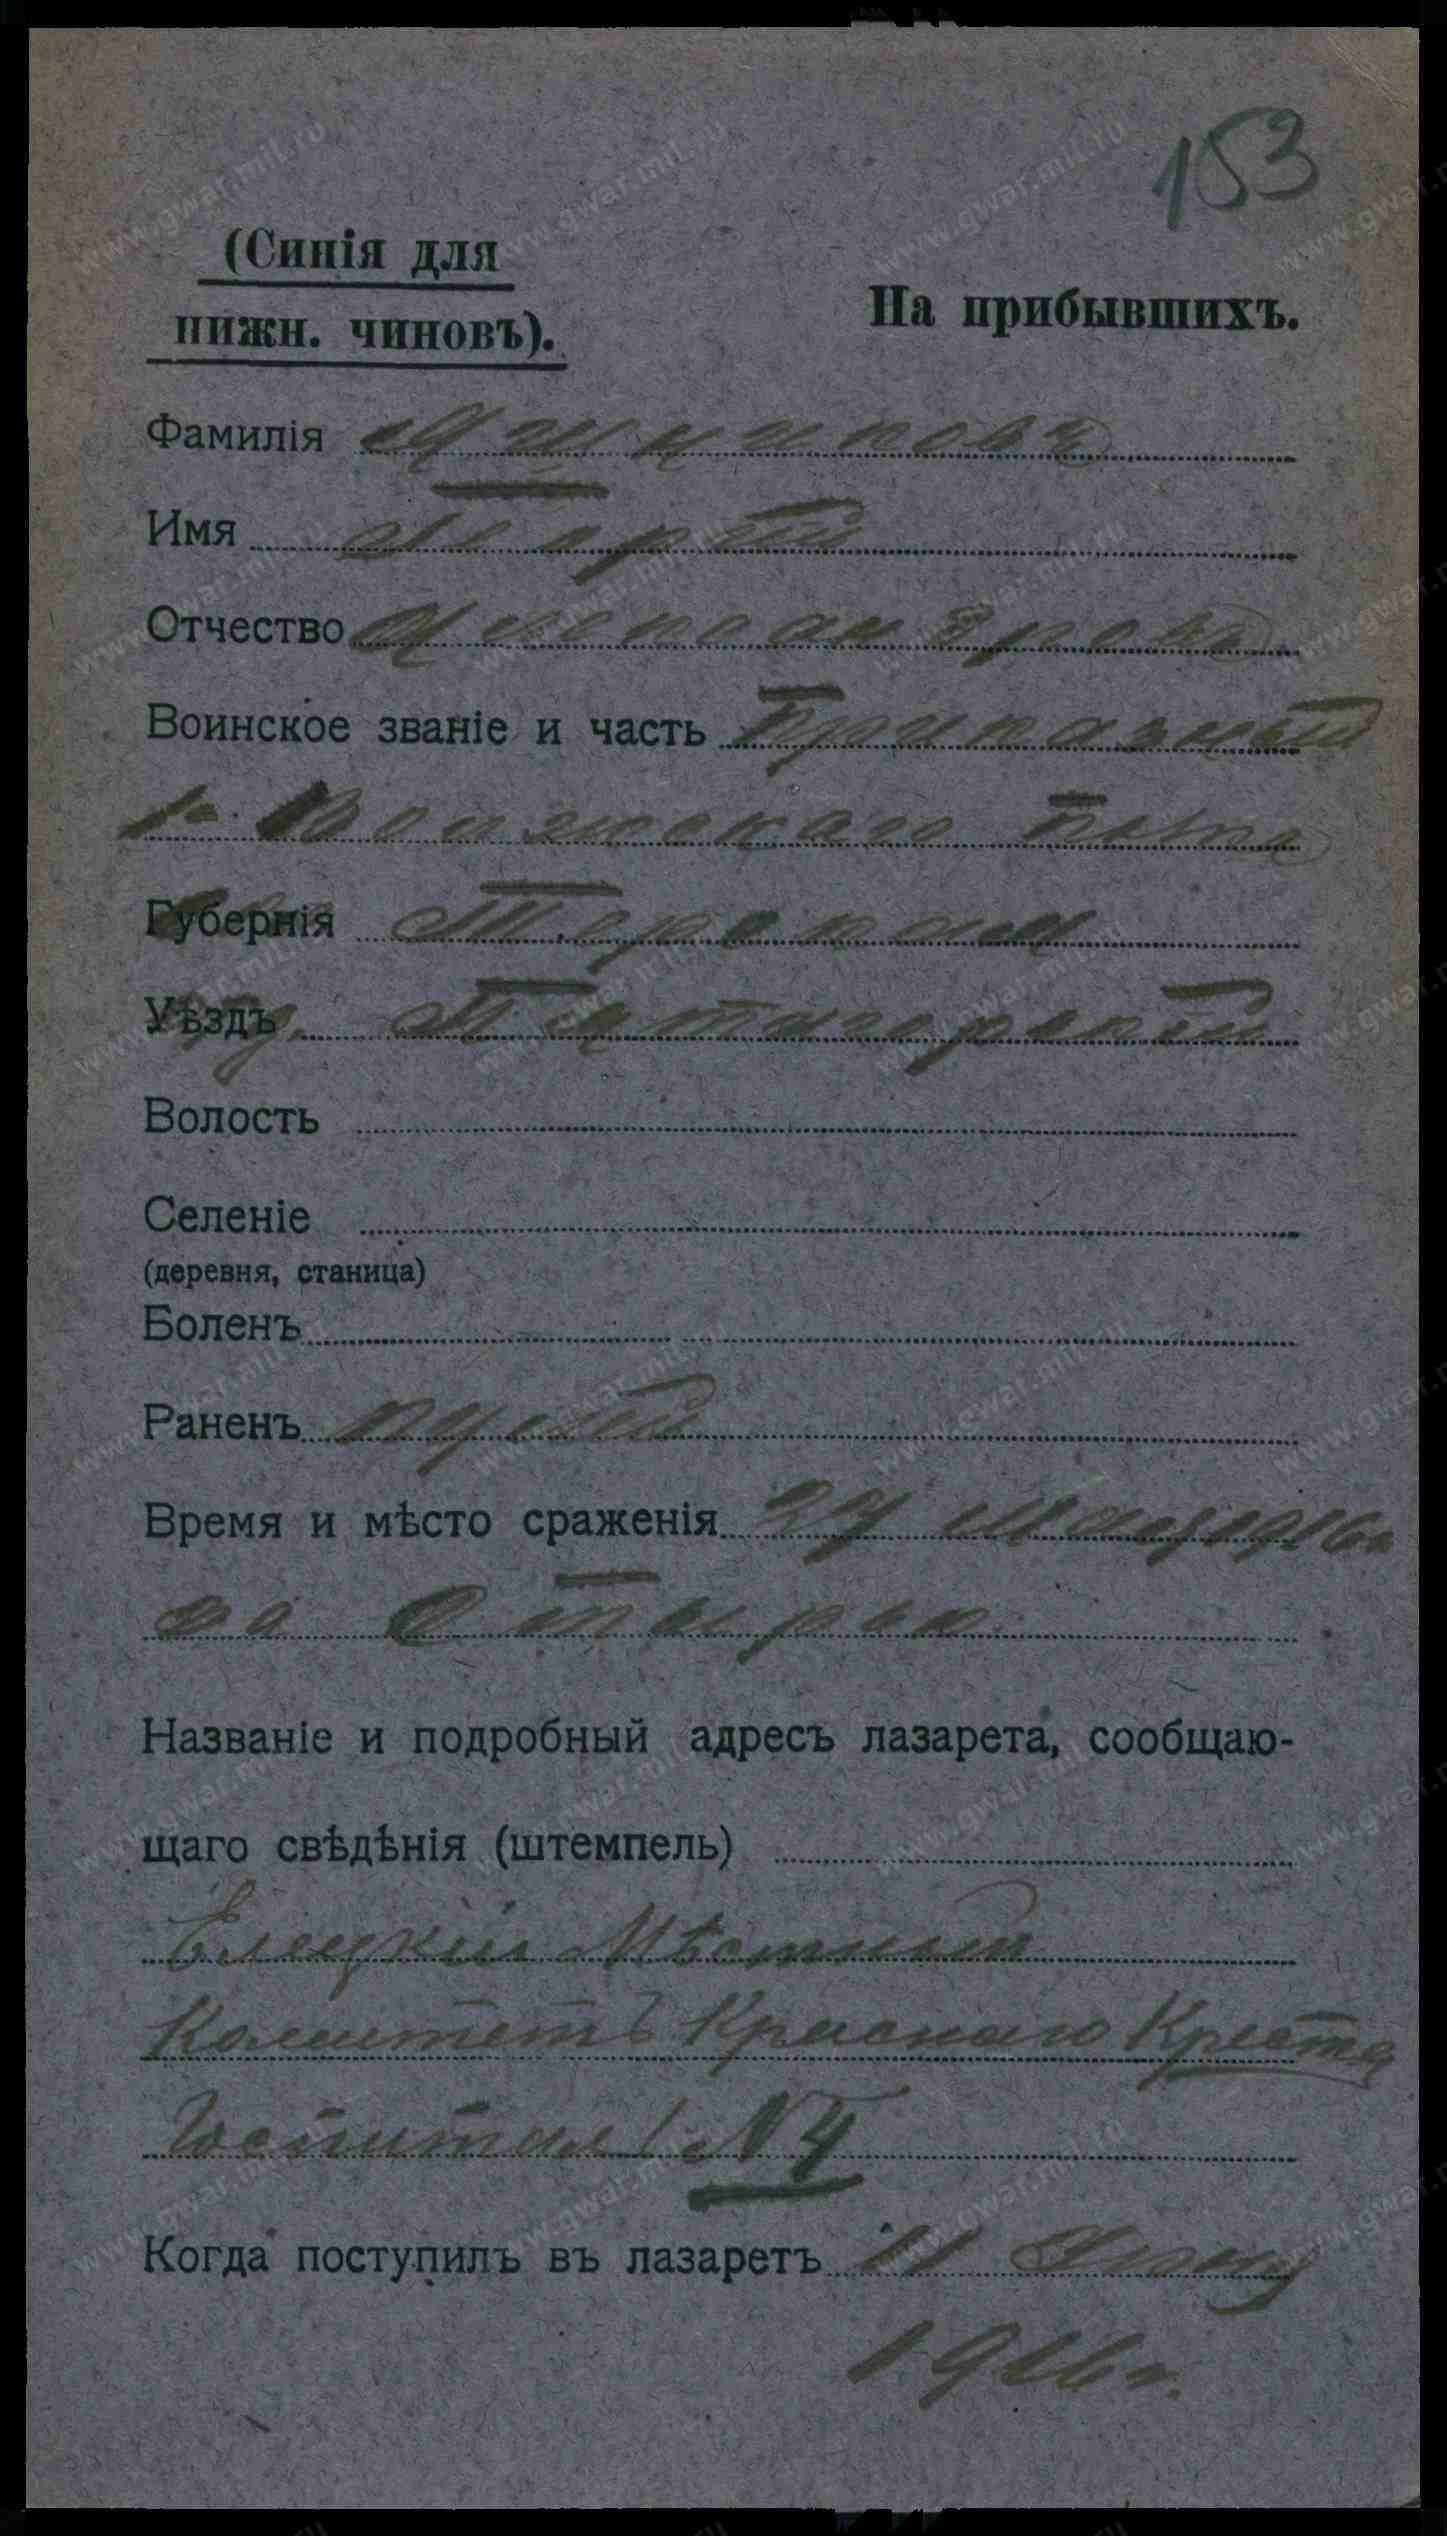 153
(Синія для
нижн. чиновъ).
На прибывшихъ.
Фамилія
Имя
Отчество
Воинское званіе и часть Приказный
1го Волжскаго полка
Губернія Терская
Уѣздъ Пятигорскій
Волость
Селеніе
(деревня, станица)
Боленъ
Раненъ пулей
Время и мѣсто сраженія 27 Мая 1916 г
на Стырью
Названіе и подробный адресъ лазарета, сообщаю-
щаго свѣдѣнія (штемпель)
Елецкій Мѣстный
Комитетъ Краснаго Креста
Госпиталь №4
Когда поступилъ въ лазаретъ 11 Іюня
1916 г.